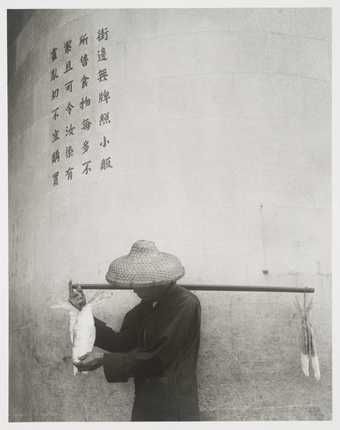 街邊無牌照小販
所售食物每多不
潔且可令汝染有
霍亂切不宜購買